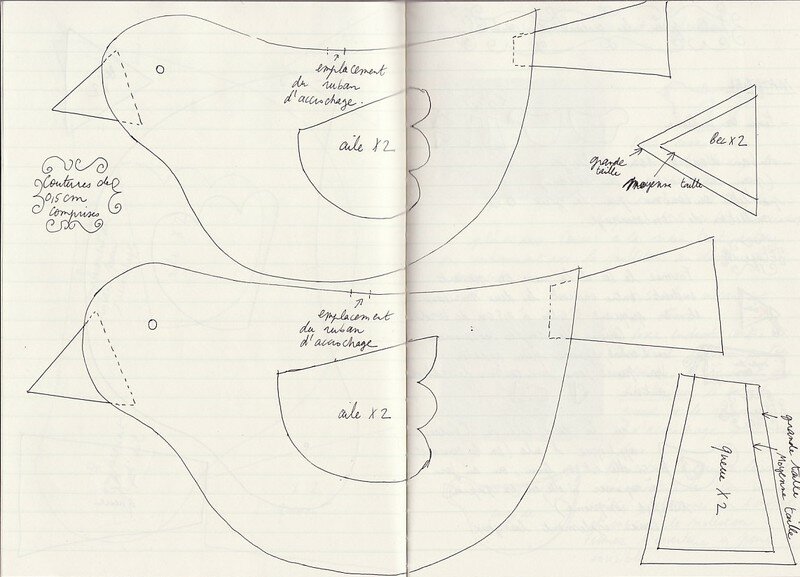 emplacement
du ruban
d'accrochage.
aile X2
Coutures de
0,5 cm
comprises
grande
taille
moyenne taille
Bec X2
emplacement
du ruban
d'accrochage
aile X2
queue X2
grande taille
Moyenne taille